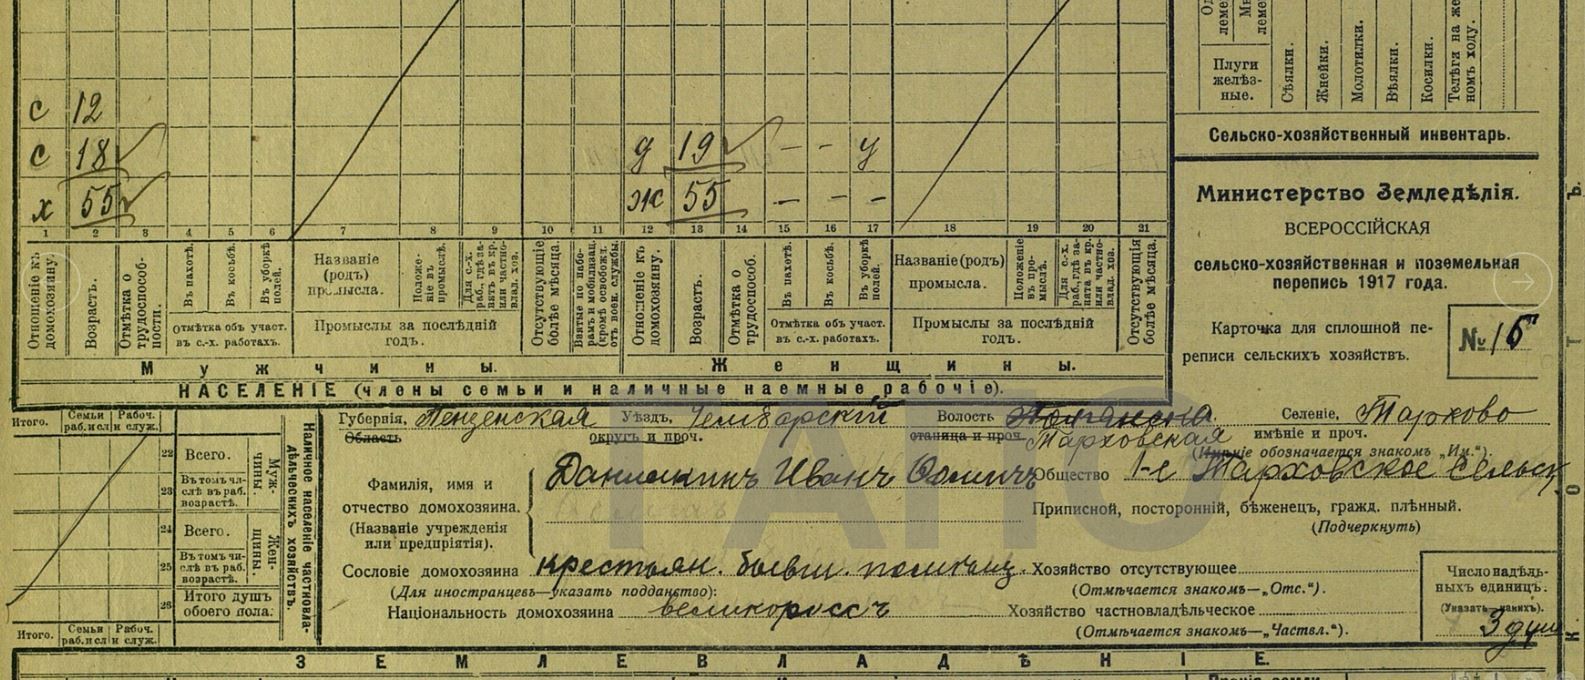 Плуги желѣз-ные.
Сѣялки.
Жнейки.
Молотилки.
Вѣялки.
Косилки.
Телѣга на же
номъ ходу.
Сельско-хозяйственный инвентарь.
с 12
с 18 д 19 - - у
х 55 ж 55 - - -
1 2 3 4 5 6 7 8 9 10 11 12 13 14 15 16 17 18 19 20 21
Отношеніе къ домохозяину.
Возрастъ.
Отмѣтка о трудоспособ-ности.
Въ пахотѣ.
Въ косьбѣ.
Въ уборкѣ полей.
Отмѣтка объ участ. въ с.-х. работахъ.
Названіе (родъ) промысла.
Положе-ніе въ промыслѣ.
Для с.-х. раб., гдѣ за-нятъ въ кр. или частно-влад. хоз.
Промыслы за послѣдній годъ.
Отсутствующіе болѣе мѣсяца.
Взятые по набо-рамъ и мобилизац. (кромѣ освобожд. отъ воен. службы.
Отношеніе къ домохозяину.
Возрастъ.
Отмѣтка о трудоспособ.
Въ пахотѣ.
Въ косьбѣ.
Въ уборкѣ полей.
Отмѣтка объ участ. въ с.-х. работахъ.
Названіе (родъ) промысла.
Положеніе въ про-мыслѣ.
Для с.-х. раб., гдѣ за-ната въ кр. или частно-влад. хоз.
Промыслы за послѣдній годъ.
Отсутствующія болѣе мѣсяца.
Мужчины. Женщины.
НАСЕЛЕНІЕ (члены семьи и наличные наемные рабочіе).
Министерство Земледѣлія.
ВСЕРОССІЙСКАЯ
сельско-хозяйственная и поземельная
перепись 1917 года.
Карточка для сплошной пе-
реписи сельскихъ хозяйствъ.
№
Итого. Семьи раб. исл Рабоч. и служ.
22 Всего.
23 Въ томъ чи-слѣ въ раб. возрастѣ.
Муж-чины.
24 Всего.
25 Въ томъ чи-слѣ въ раб. возрастѣ.
Жен-щины.
26 Итого душъ обоего пола.
Итого. Семьи раб. исл Рабоч. и служ.
Наличное населеніе частновла-дѣльческихъ хозяйствъ.
Губернія, Пензенская Уѣздъ, Чембарскій Волость Селеніе, Тархово
Область округъ и проч. станица и проч. Тарховская имѣніе и проч.
(Имѣніе обозначается знакомъ „Им.“).
Фамилія, имя и отчество домохозяина. Иванъ Общество 1-е Тарховское Сельск
(Названіе учрежденія или предпріятія). Приписной, посторонній, бѣженецъ, гражд. плѣнный.
(Подчеркнуть)
Сословіе домохозяина крестьян. Хозяйство отсутствующее
(Для иностранцевъ—указать подданство): (Отмѣчается знакомъ—„Отс.“).
Національность домохозяина великороссъ Хозяйство частновладѣльческое
(Отмѣчается знакомъ—„Частвл.“).
Число надѣль-ныхъ единицъ.
(Указать какихъ).
3 душ
ЗЕМЛЕВЛАДѢНІЕ.
ГАПО